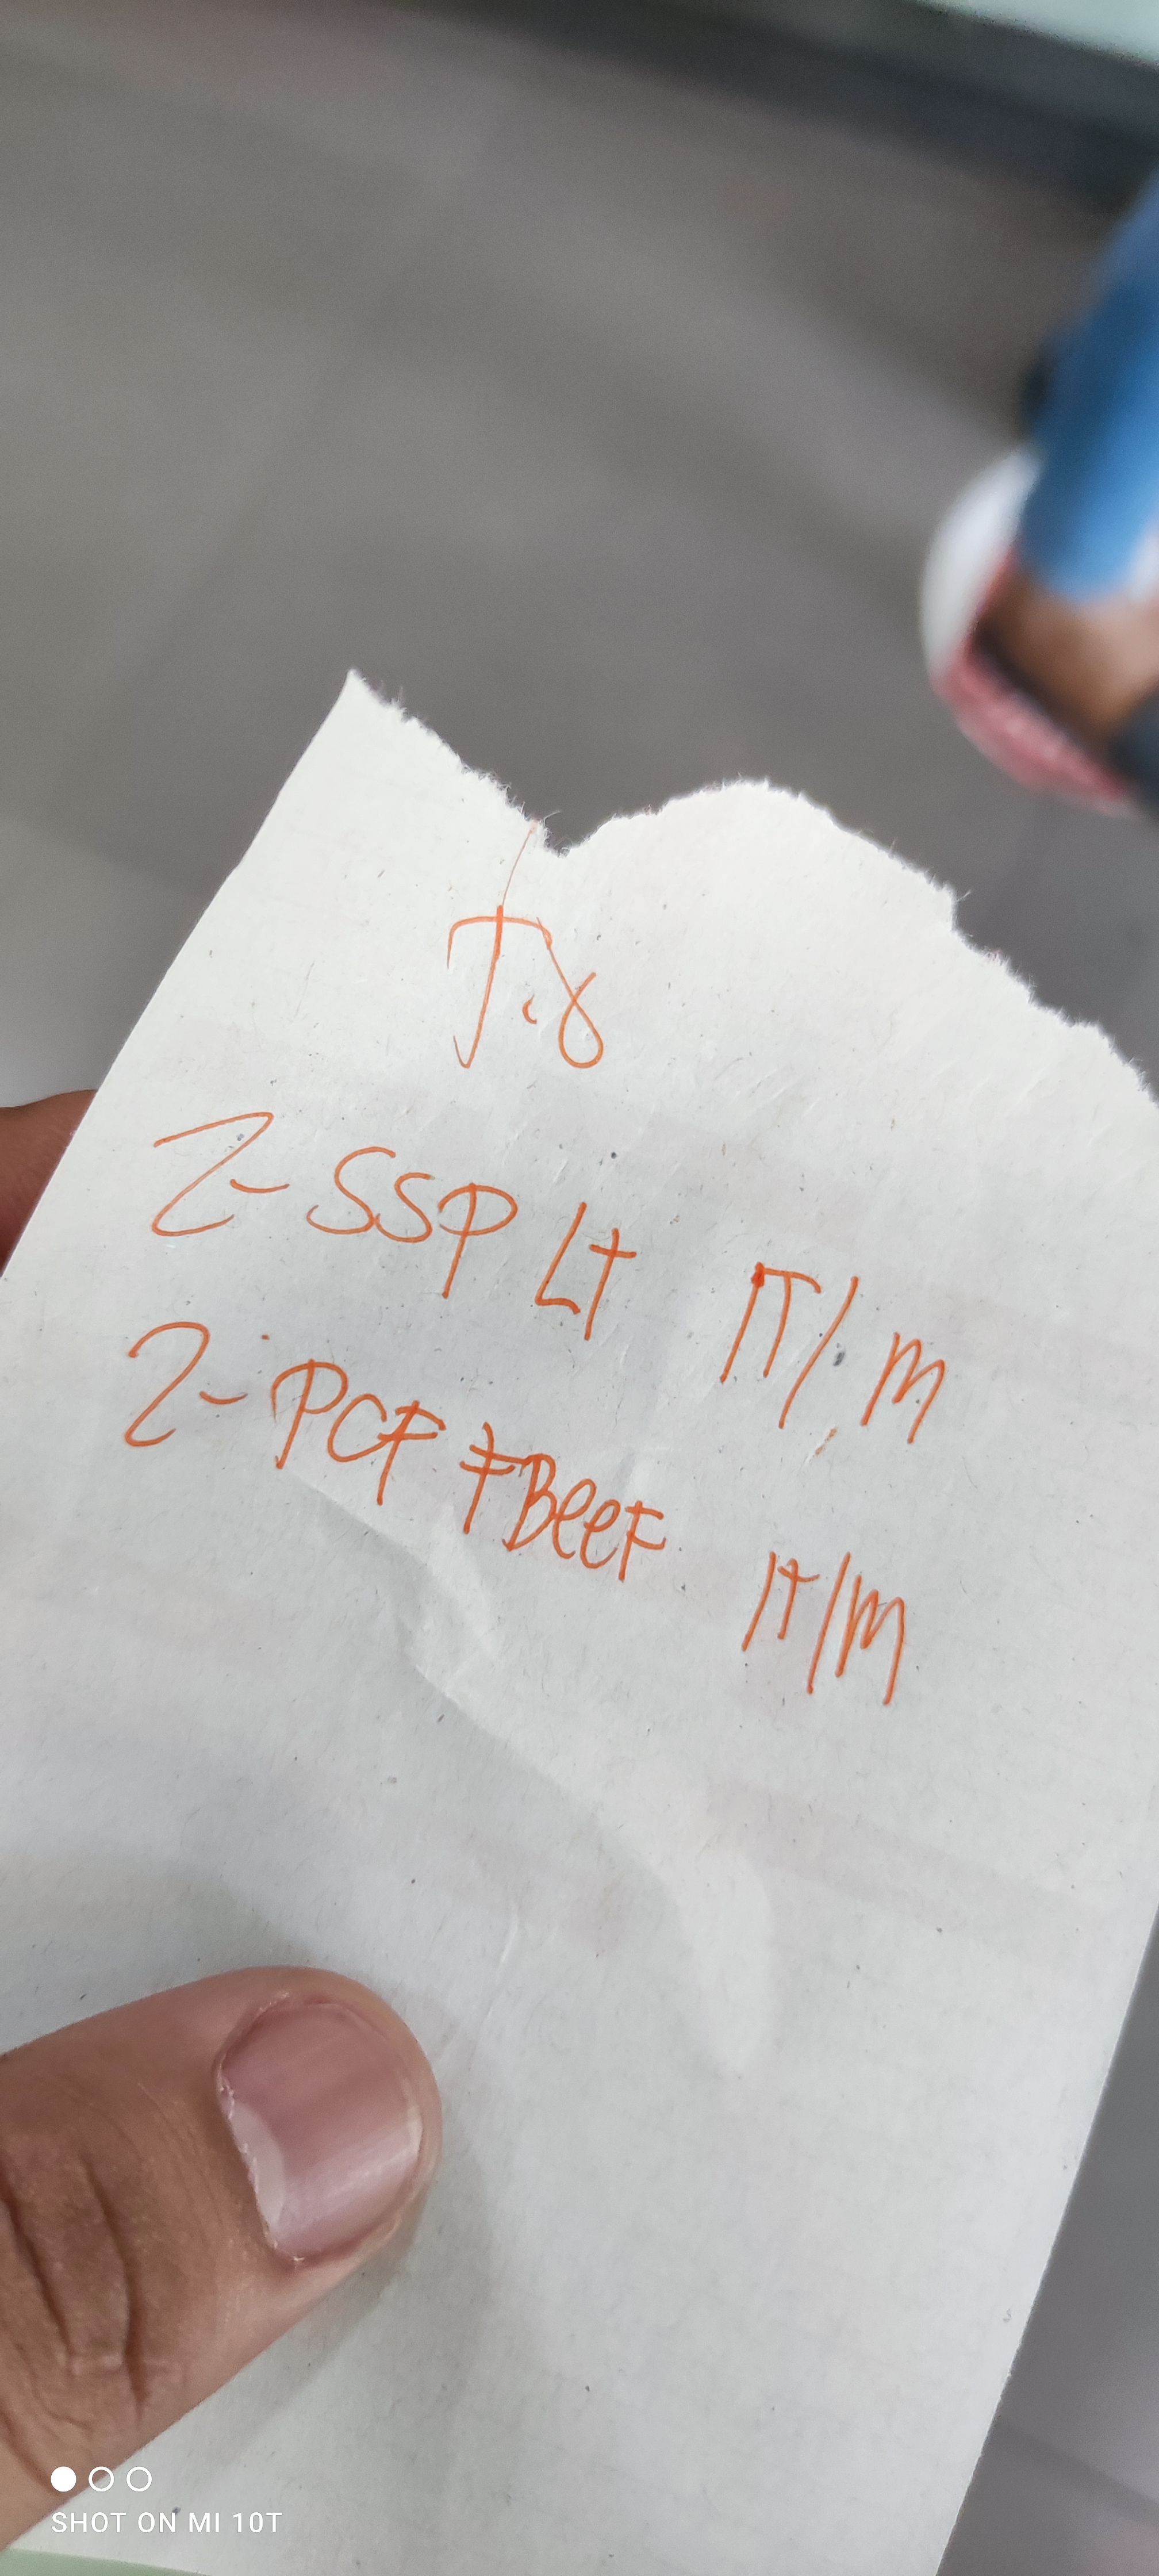 T.8
2- SSP Lt IT/M
2- PCF FBeeF IT/M
SHOT ON MI 10T